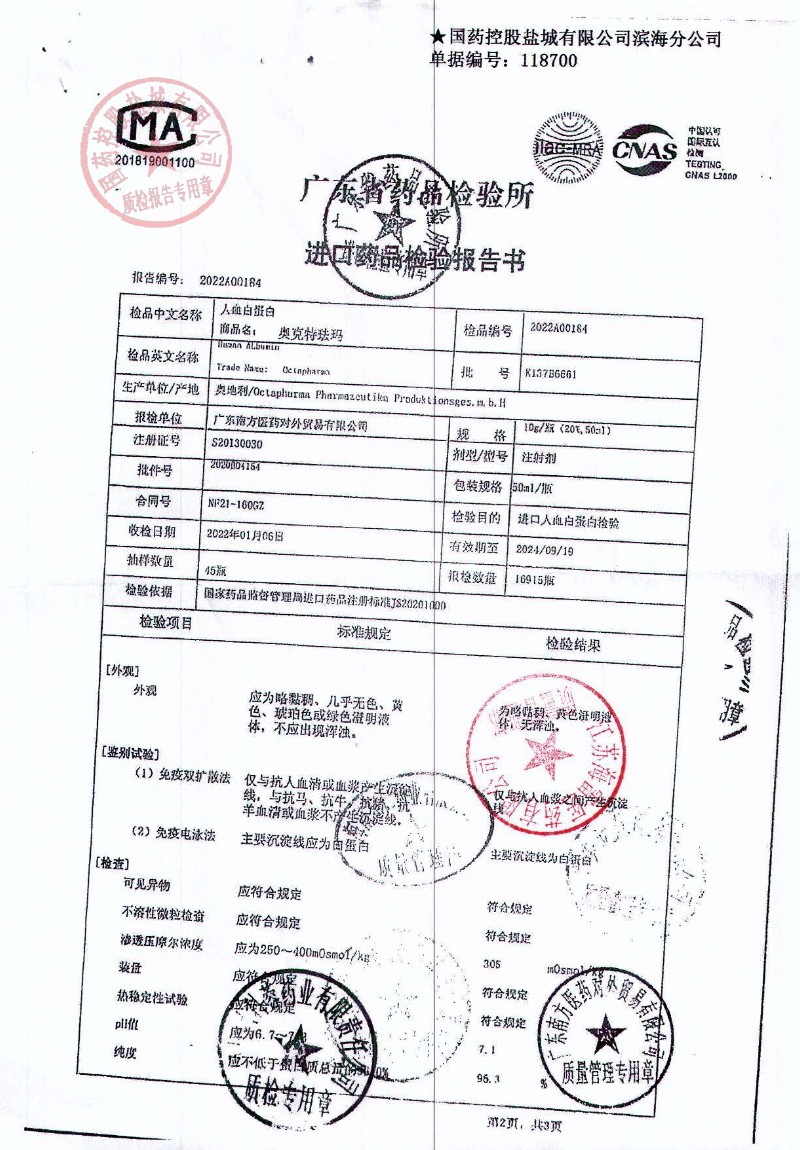 ★国药控股盐城有限公司滨海分公司
单据编号：118700
MA
201819001100
国药控股盐城有限公司
质检报告专用章
ilac-MRA
CNAS
中国认可
国际互认
检测
TESTING
CNAS L2000
广东省药品检验所
进口药品检验报告书
报告编号： 2022A00184
检品中文名称 人血白蛋白
商品名： 奥克特珐玛
检品编号 2022A00184
检品英文名称 Human Albumin
Trade Name: Octapharma
批 号 K137B6661
生产单位/产地 奥地利/Octapharma Pharmazeutika Produktionsges.m.b.H
报检单位 广东南方医药对外贸易有限公司
规 格 10g/瓶（20%,50ml）
注册证号 S20130030
剂型/型号 注射剂
批件号
包装规格 50ml/瓶
合同号 NF21-160GZ
检验目的 进口人血白蛋白检验
收检日期 2022年01月06日
有效期至 2024/09/19
抽样数量 45瓶
报检数量 16915瓶
检验依据 国家药品监督管理局进口药品注册标准JS20201000
检验项目 标准规定 检验结果
[外观]
外观 应为略黏稠、几乎无色、黄
色、琥珀色或绿色澄明液
体，不应出现浑浊。
为略黏稠、黄色澄明液
体，无浑浊。
[鉴别试验]
（1）免疫双扩散法 仅与抗人血清或血浆产生沉淀
线，与抗马、抗牛、抗猪、抗
羊血清或血浆不产生沉淀线。
仅与抗人血浆之间产生沉淀
线
（2）免疫电泳法 主要沉淀线应为白蛋白 主要沉淀线为白蛋白
[检查]
可见异物 应符合规定 符合规定
不溶性微粒检查 应符合规定 符合规定
渗透压摩尔浓度 应为250～400mOsmol/kg 305 mOsmol/kg
装量 应符合规定 符合规定
热稳定性试验 应符合规定 符合规定
pH值 应为6.7～ 7.1
纯度 应不低于蛋白质总量的 96.3 %
质量管理
质检专用章
广东南方医药对外贸易有限公司
质量管理专用章
第2页，共3页